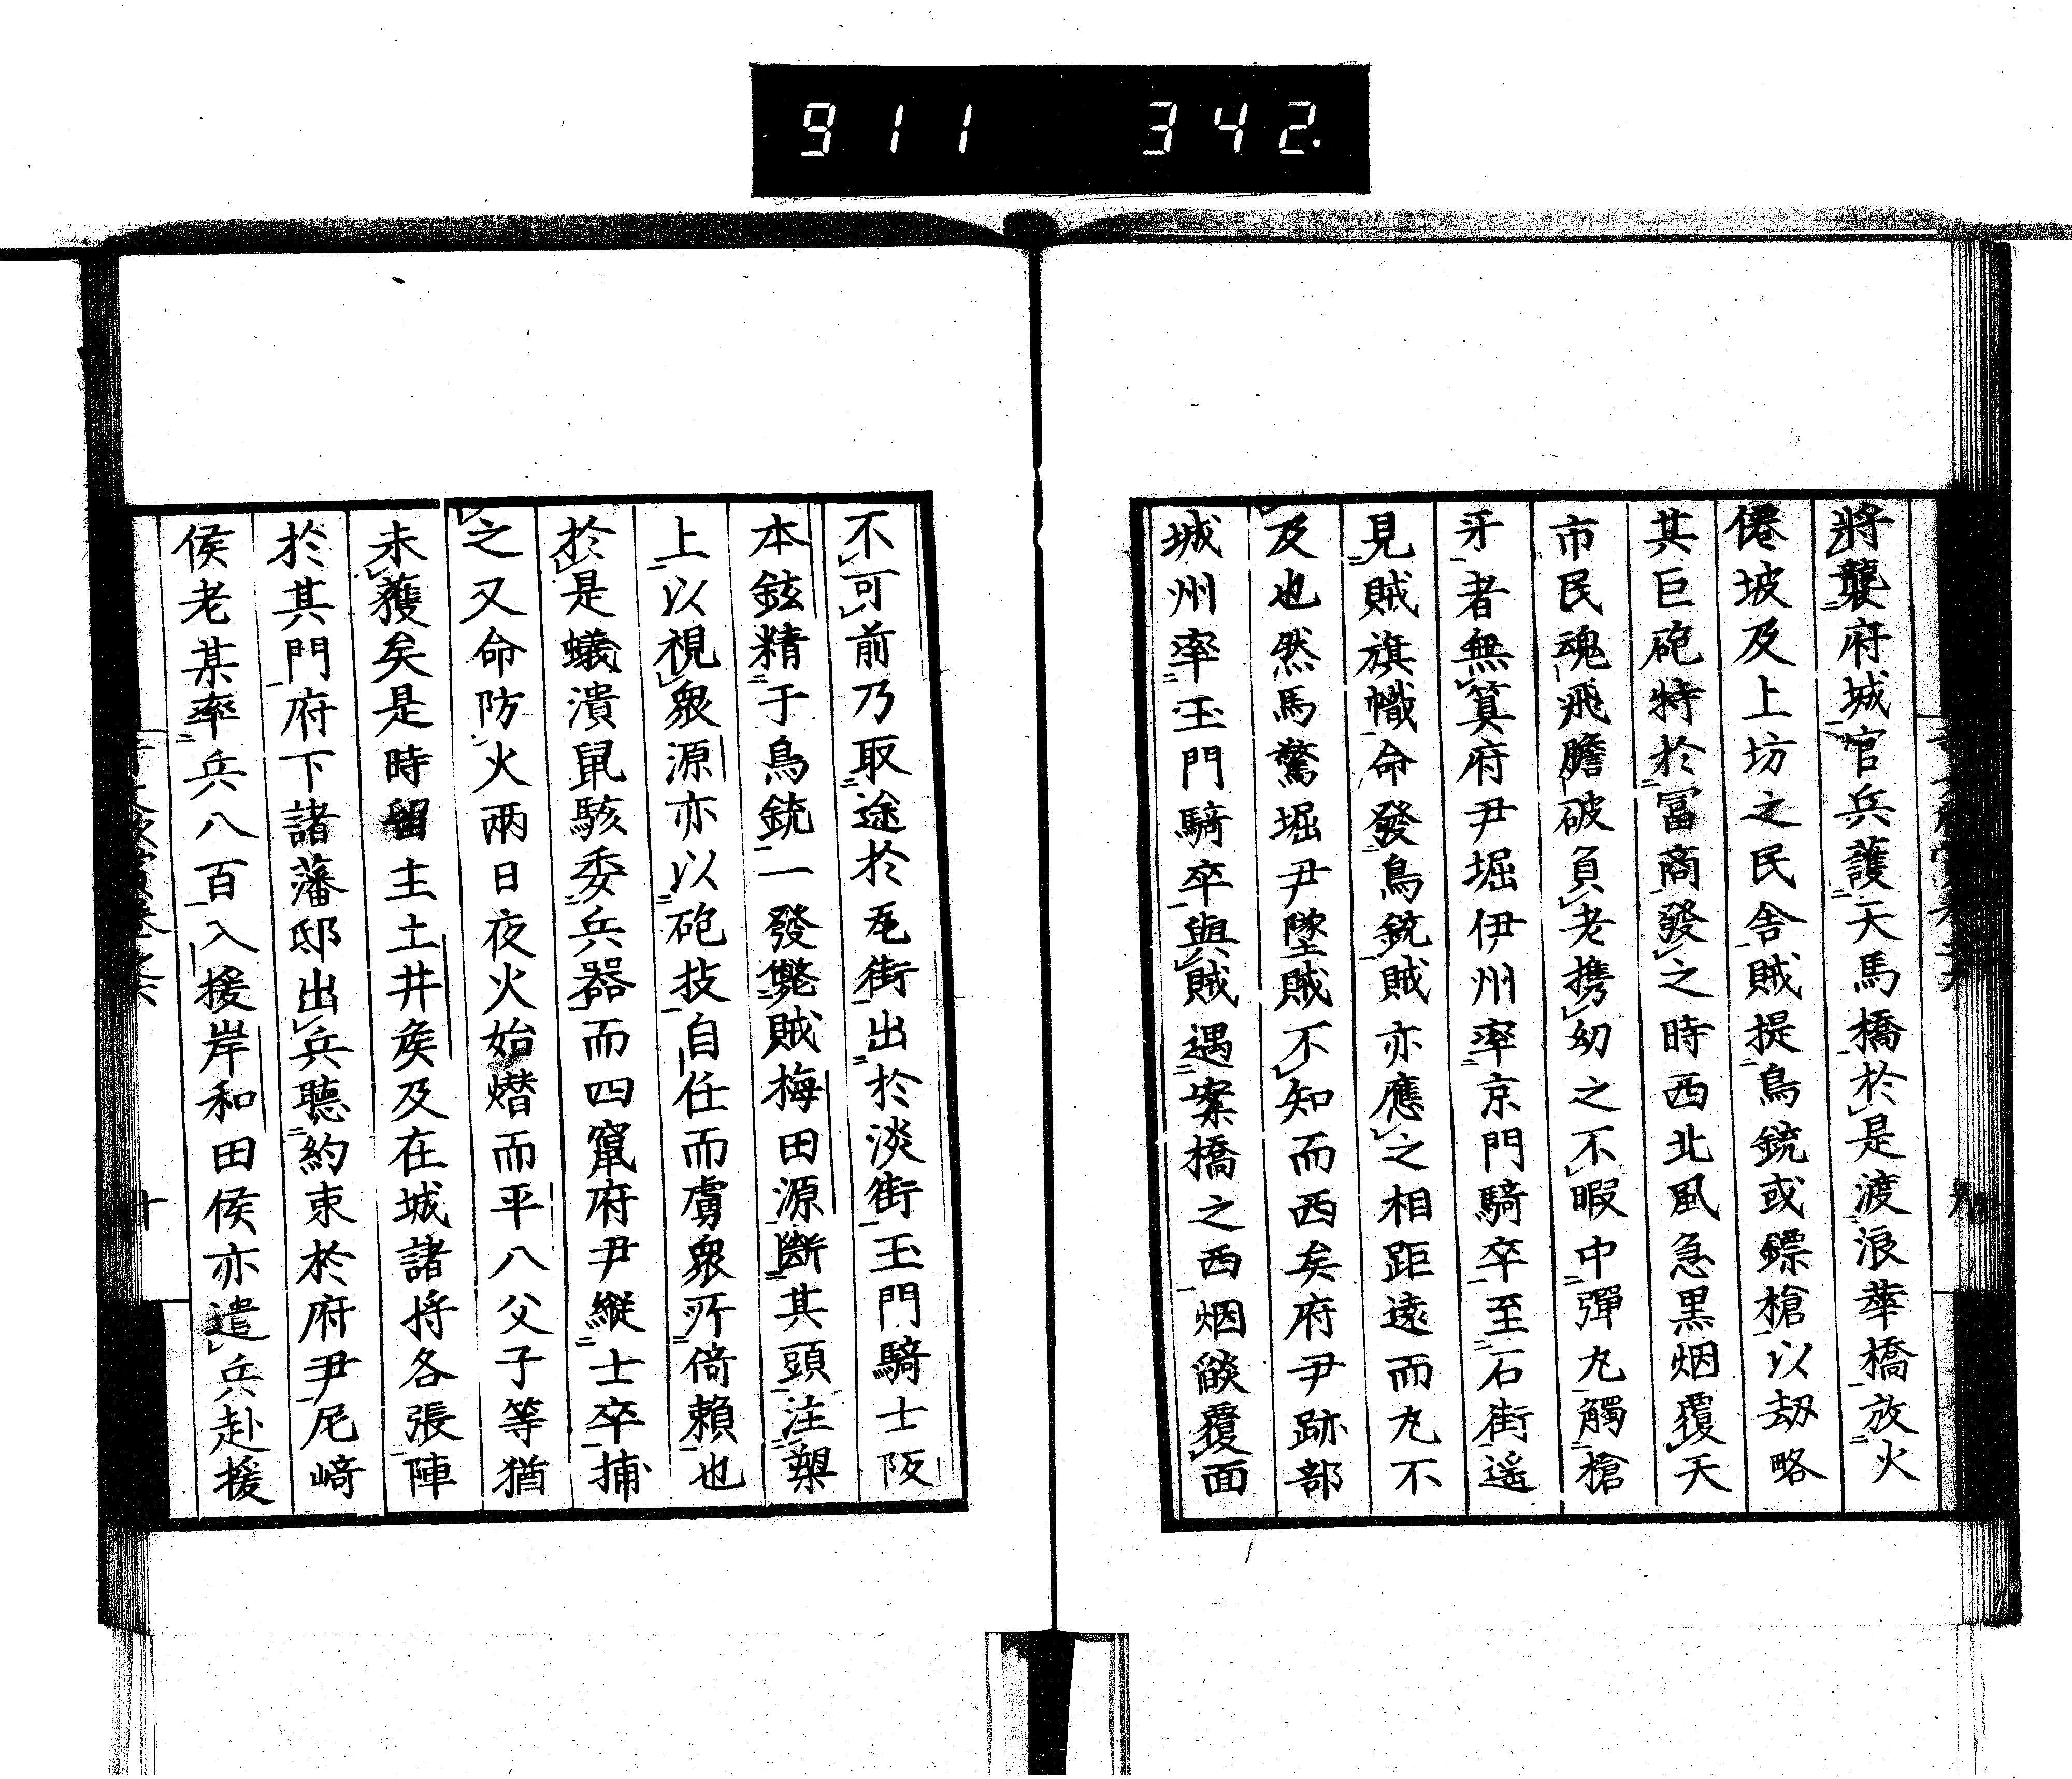 911 342.
將襲府城官兵護天馬橋於是渡浪華橋放火
僊坡及上坊之民舍賊提鳥銃或鏢槍以劫略
其巨砲特於冨商發之時西北風急黒烟覆天
市民魂飛膽破負老携幼之不暇中彈丸觸槍
牙者無算府尹堀伊州率京門騎卒至石街遥
見賊旗幟命發鳥銃賊亦應之相距遠而丸不
及也然馬驚堀尹墜賊不知而西矣府尹跡部
城州率玉門騎卒與賊遇案橋之西烟燄覆面
不可前乃取途於瓦街出於淡街玉門騎士阪
本鉉精于鳥銃一發斃賊梅田源斷其頭注槊
上以視衆源亦以砲技自任而虜衆所倚頼也
於是蟻潰鼠駭委兵器而四竄府尹縱士卒捕
之又命防火兩日夜火始熸而平八父子等猶
未獲矣是時留主土井矦及在城諸將各張陣
於其門府下諸藩邸出兵聽約束於府尹尼﨑
侯老某率兵八百入援岸和田侯亦遣兵赴援
十